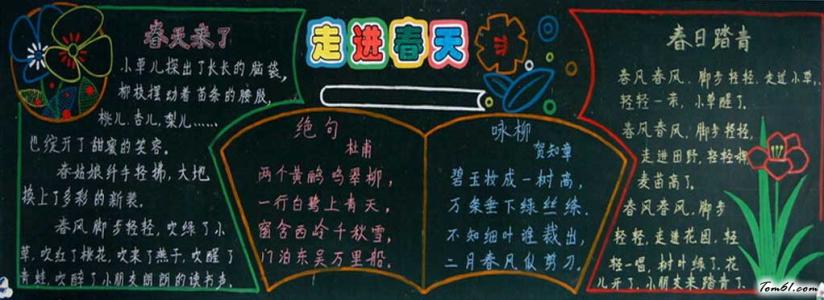 走进春天
春天来了
小草儿探出了长长的脑袋,
柳枝摆动着苗条的腰肢,
桃儿、杏儿、梨儿……
也绽开了甜蜜的笑容。
春姑娘纤手轻梯,大地
换上了多彩的新装。
春风脚步轻轻,吹绿了小
草,吹红了桃花,吹来了燕子,吹醒了
青蛙,吹醉了小朋友朗朗的读书声。
绝句
杜甫
两个黄鹂鸣翠柳,
一行白鹭上青天。
窗含西岭千秋雪,
门泊东吴万里船。
咏柳
贺知章
碧玉妆成一树高,
万条垂下绿丝绦。
不知细叶谁裁出,
二月春风似剪刀。
春日踏青
春风春风,脚步轻轻,走进小草,
轻轻一亲,小草醒了。
春风春风,脚步轻轻,
走进田野,轻轻
麦苗高了。
春风春风,脚步
轻轻,走进花园,轻
轻一唱,树叶绿了,花
儿开了,小朋友来踏青了。
Tom61.com